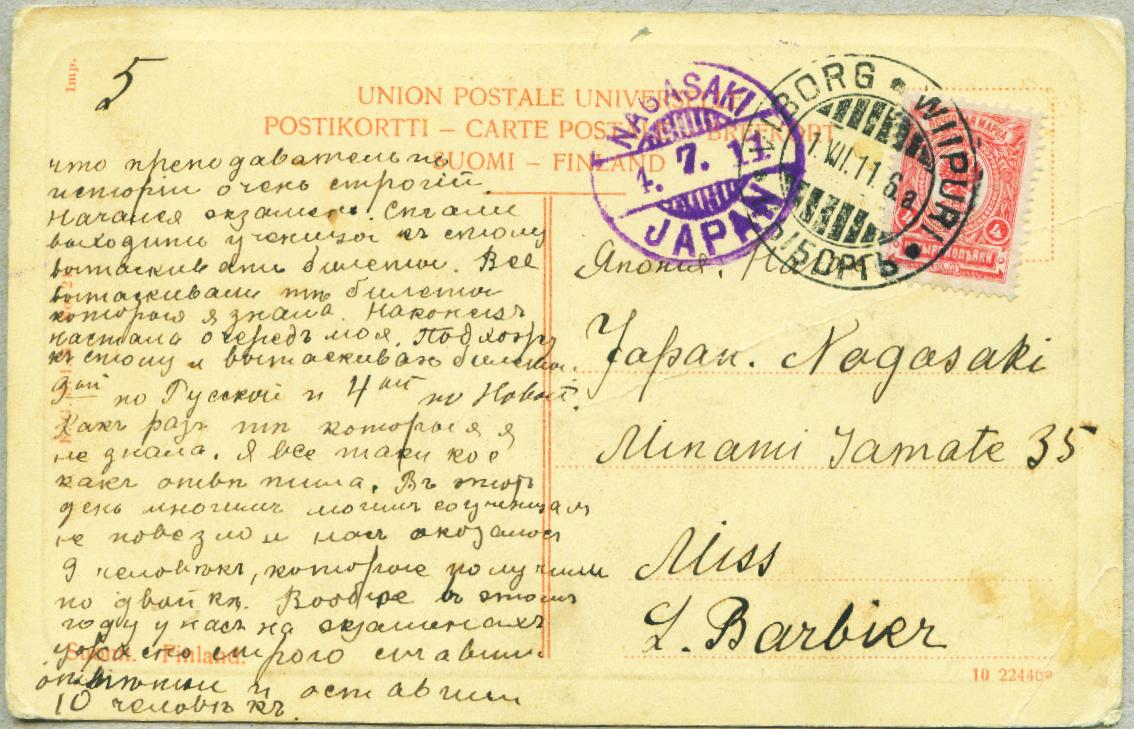 5
Imp.
UNION POSTALE UNIVERSELLE
POSTIKORTTI – CARTE POSTALE – BREFKORT
SUOMI – FINLAND
NAGASAKI
1. 7. 11
JAPAN
WIBORG • WIIPURI •
1.VII.11.6 a
ВЫБОРГЪ
ПОЧТОВАЯ МАРКА
4
что преподаватель по
исторіи очень строгій.
Начался экзамен. Стали
выходить ученицы къ столу
вытаскивать билеты. Все
вытаскивали тѣ билеты
которыя я знала. Наконецъ
настала очередь моя. Подхожу
къ столу и вытаскиваю билеты.
9ый по Русской и 4ый по Новой.
Какъ разъ тѣ которыя я
не знала. Я все таки кое
какъ отвѣтила. Въ этотъ
день многимъ моимъ соученицам
не повезло и насъ оказалось
9 человѣкъ, которые получили
по двойкѣ. Вообще въ этомъ
году у насъ на экзаменахъ
ужасно строго ставили
отмѣтки и оставили
10 человѣкъ.
Японія.
Japan. Nagasaki
Minami Jamate 35
Miss
L. Barbier
Suomi. – Finland.
10 22446